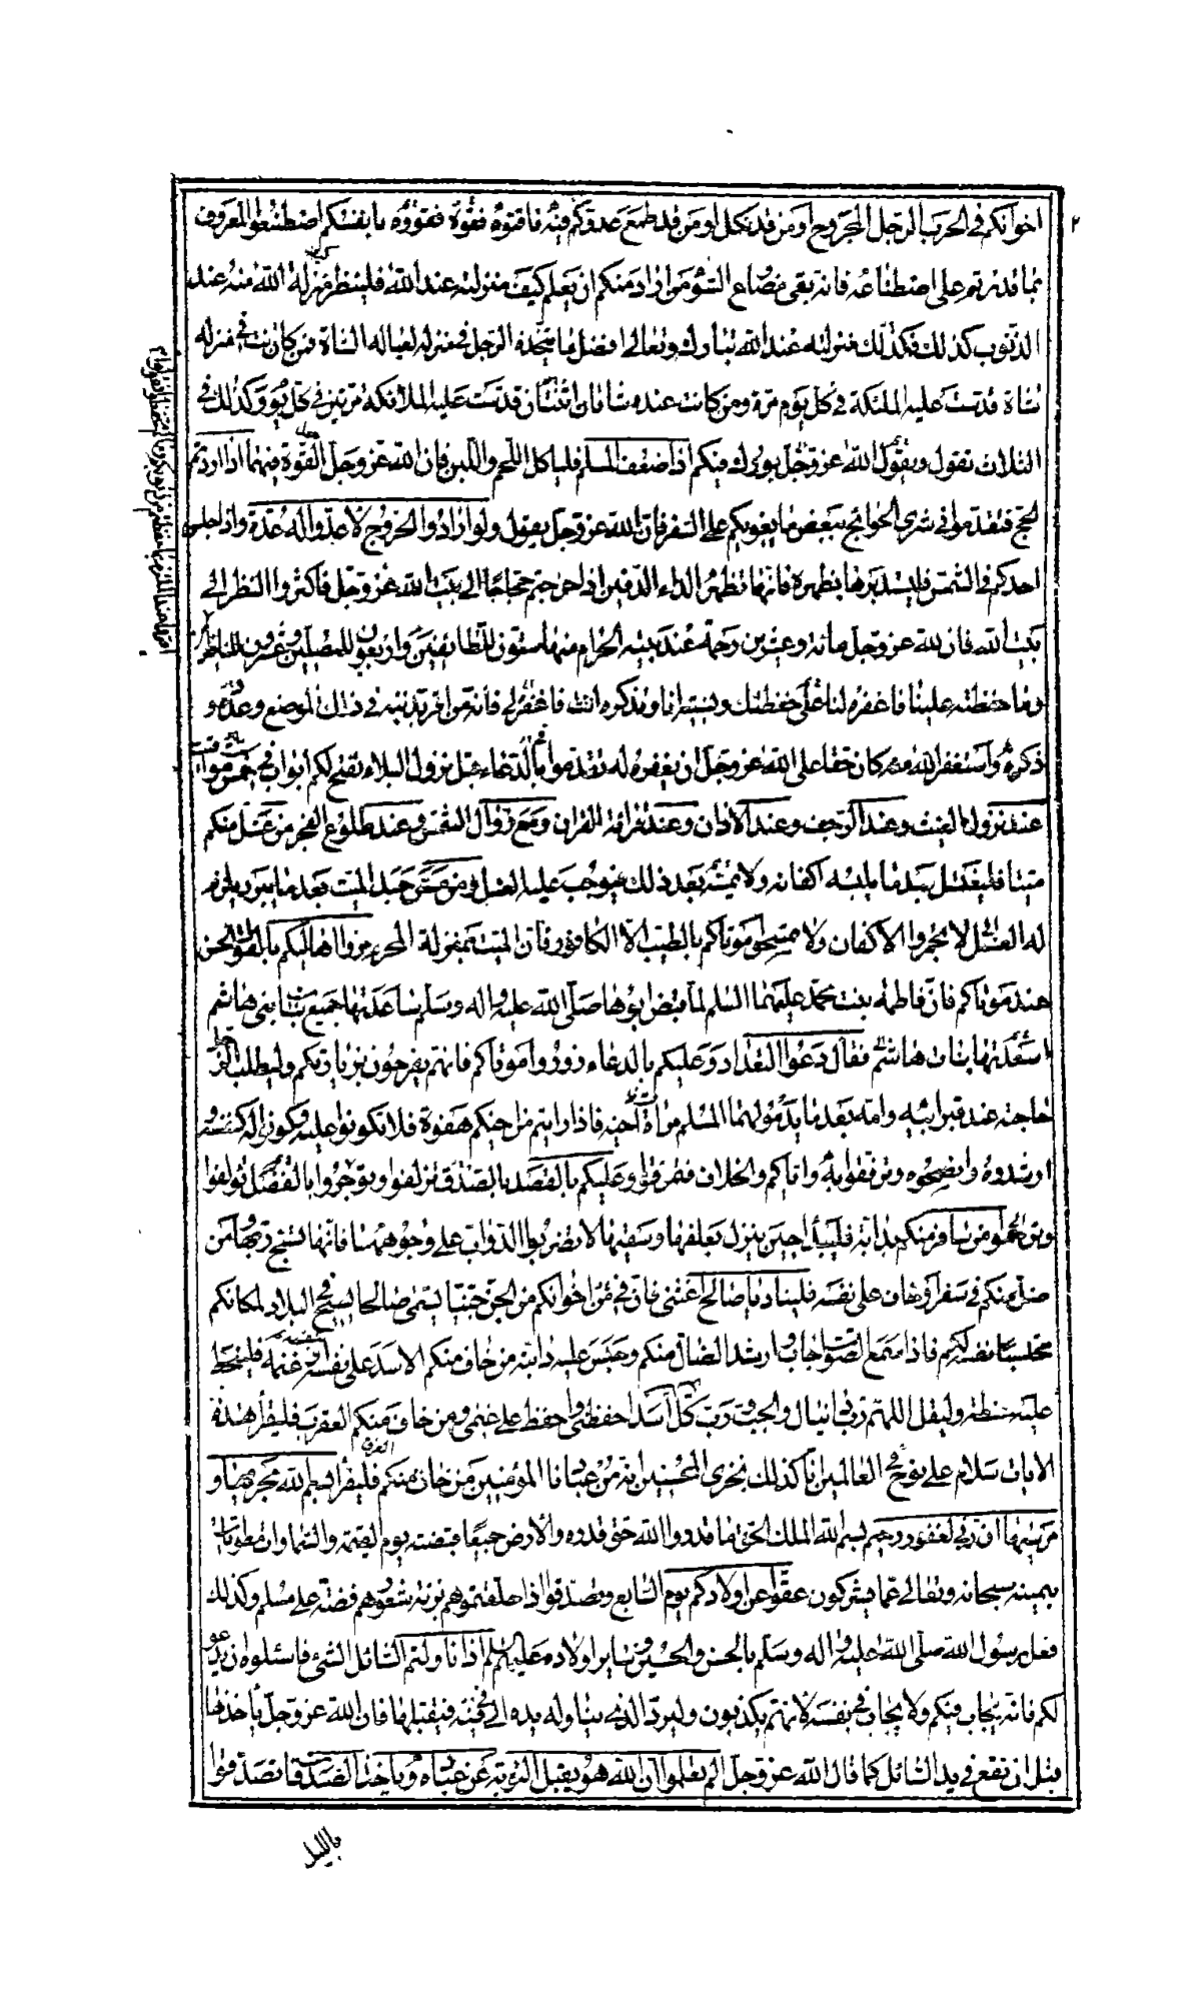 ٢
اخوانكم في الحرب الرجل المجروح او من قد نكل او من قد طمع عدوكم فيه فاقوه فقوة فقووه بانفسكم اصطنعوا المعروف
بما قدرتم على اصطناعه فانه يقي مصارع السوء من اراد منكم ان يعلم كيف منزلته عند الله فلينظر كيف منزلة الله منه عند
الذنوب كذلك فكذلك منزلته عند الله تبارك وتعالى افضل ما يتخذه الرجل في منزله لعياله الشاة فمن كانت في منزله
شاة قدست عليه الملئكة في كل يوم مرة ومن كانت عنده شاتان اثنتان قدست عليه الملائكة مرتين في كل يوم وكذلك في
الثلاث تقول ويقول الله عز وجل بورك فيكم اذا ضعف المسلم فلياكل اللحم واللبن فان الله عز وجل جعل القوة فيهما اذا اردتم
الحج فتقدموا في شرى الحوائج ببعض ما يقويكم على السفر فان الله عز وجل يقول ولو ارادوا الخروج لاعدوا له عدة واذا جلس
احدكم في الشمس فليستدبرها بظهره فانها تظهر الداء الدفين اذا خرجتم حجاجا الى بيت الله عز وجل فاكثروا النظر الى
بيت الله فان لله عز وجل مائة وعشرين رحمة عند بيته الحرام منها ستون للطائفين واربعون للمصلين وعشرون للناظرين
وما حفظته علينا فاغفره لنا على حفظتك ونسينا وتذكره انت فاغفر لي فانه من اقر بذنبه في ذلك الموضع وعده و
ذكره واستغفر الله منه كان حقا على الله عز وجل ان يغفره له تقدموا بالدعاء قبل نزول البلاء تفتح لكم ابواب في خمس مواقيت
عند نزول الغيث وعند الزحف وعند الاذان وعند قرائة القران ومع زوال الشمس وعند طلوع الفجر من غسل منكم
ميتا فليغتسل بعد ما يلبسه اكفانه ولا يمسه بعد ذلك فيوجب عليه الغسل ومن مس جسد الميت بعد ما يبرد يلزم
له الغسل لا تجمروا الاكفان ولا تمسحوا موتاكم بالطيب الا الكافور فان الميت بمنزلة المحرم مروا اهاليكم بالقول الحسن
عند موتاكم فان فاطمة بنت محمد عليهما السلم لما قبض ابوها صلى الله عليه واله وسلم ساعدتها جميع بنات بني هاشم
فقال دعوا التعداد وعليكم بالدعاء زوروا موتاكم فانهم يفرحون بزيارتكم وليطلب الرجل
حاجته عند قبر ابيه وامه بعد ما يدعو لهما المسلم مرأة اخيه فاذا رايتم من اخيكم هفوة فلا تكونوا عليه وكونوا له كنفسه و
ارشدوه وانصحوه وترفقوا به واياكم والخلاف فتمزقوا وعليكم بالقصد
ومن سافر منكم بدابة فليبدأ حين ينزل بعلفها وسقيها لا تضربوا الدواب على وجوهها فانها تسبح ربها من
ضل منكم في سفر او خاف على نفسه فليناد يا صالح اغثني فان في اخوانكم من الجن جنيا يسمى صالحا يسيح في البلاد لمكانكم
محتسبا نفسه لكم فاذا سمع الصوت اجاب وارشد الضال منكم وحبس عليه دابته من خاف منكم الاسد على نفسه او غنمه فليخط
عليه خطة وليقل اللهم رب دانيال والجب ورب كل اسد احفظني واحفظ علي غنمي ومن خاف منكم العقرب فليقرأ هذه
الايات سلام على نوح في العالمين انا كذلك نجزي المحسنين انه من عبادنا المؤمنين من خاف منكم الغرق فليقرأ بسم الله مجريها و
مرسيها ان ربي لغفور رحيم بسم الله الملك الحق ما قدروا الله حق قدره والارض جميعا قبضته يوم القيمة والسماوات مطويات
بيمينه سبحانه وتعالى عما يشركون عقوا عن اولادكم يوم السابع وتصدقوا اذا حلقتموهم بزنة شعورهم فضة على مسلم وكذلك
فعل رسول الله صلى الله عليه واله وسلم بالحسن والحسين وساير اولاده عليهم السلم اذا ناولتم السائل الشيء فاسئلوه ان يدعو
لكم فانه يجاب فيكم ولا يجاب في نفسه لانهم يكذبون وليرد الذي يناوله يده الى فيه فيقبلها فان الله عز وجل يأخذها
قبل ان تقع في يد السائل كما قال الله عز وجل الم يعلموا ان الله هو يقبل التوبة عن عباده ويأخذ الصدقات تصدقوا
بالليل